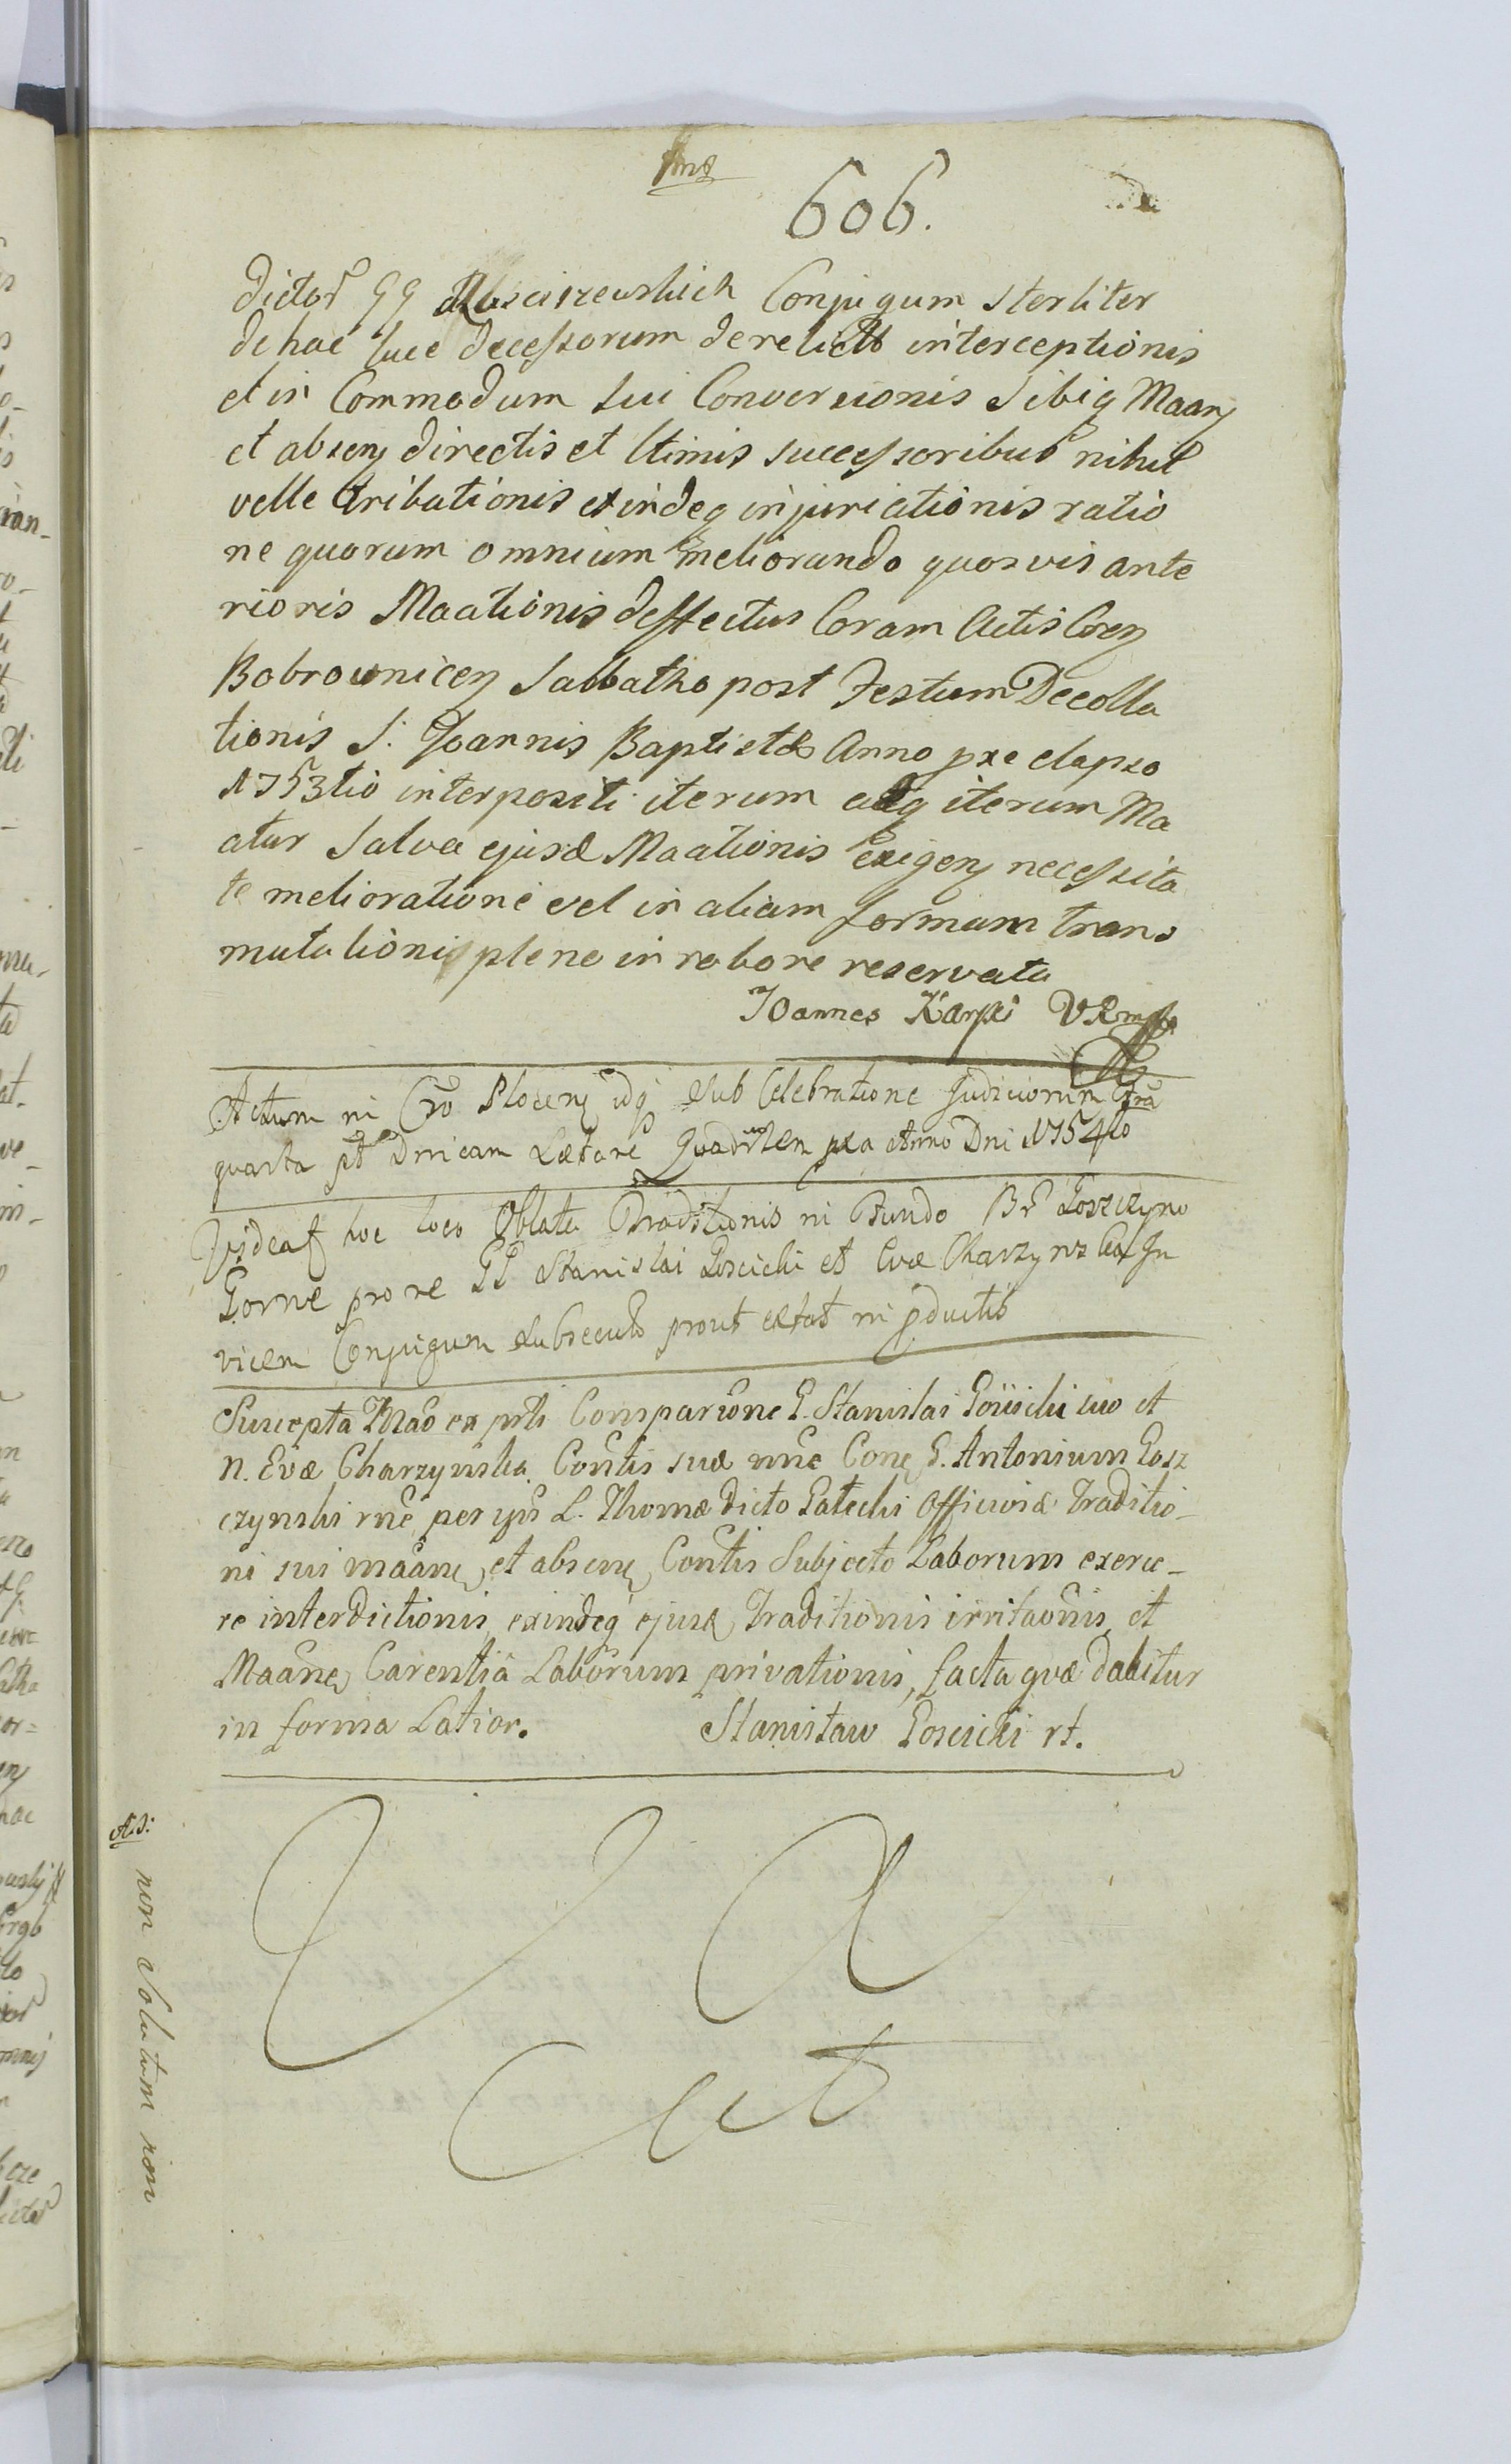 606.
dictor GG Conjugum sterliter
de hac luce decessorum derelicto interceptionis
et in Commodum sui Conversionis sibiq Maan
et absen directis et ltimis successoribus nihil
velle tribationis exindeq injuriationis ratio
ne quorum omnium meliorando quosvis ante
rioris Maationis deffectus Coram Actis Cren
Bobrownicen Sabbatho post Festum Decolla
tionis S. Joannis Baptistæ Anno præelapso
1753tio interpositi iterum atq iterum Ma
atur salva ejusd Maationis exigen necessita
te melioratione vel in aliam formam trans
mutationis plene in robore reservata
Joannes Karski
Actum in Cro Plocen idq sub Celebratione Judiciorum fria
quarta pt Dnicam Lætare Quadrlem pxa Anno Dni 1754to
Videat hoc loco Oblata Traditionis in Fundo Br Goszczyno
Gorne pro re GG Stanislai Goscicki et Evæ Charzynska In
vicem Conjugum subsecuto prout extat in pductis
Suscepta Mao ex prti Comparione G. Stanislai Goscicki suo et
N. Evæ Charzynska Contis suæ nne Cone G. Antonium Gosz
czynski rne per L. Thomæ dicto Gatecki Officiosæ Traditio-
ni sui maane et absene Contis Subjecto Laborum exerce-
re interdictionis exindeq ejusd Traditionis irritaonis et
Maane Carentia Laborum privationis, facta quæ dabitur
in forma Latior. Stanisław Goscicki rt.
Cat
non Solutum non